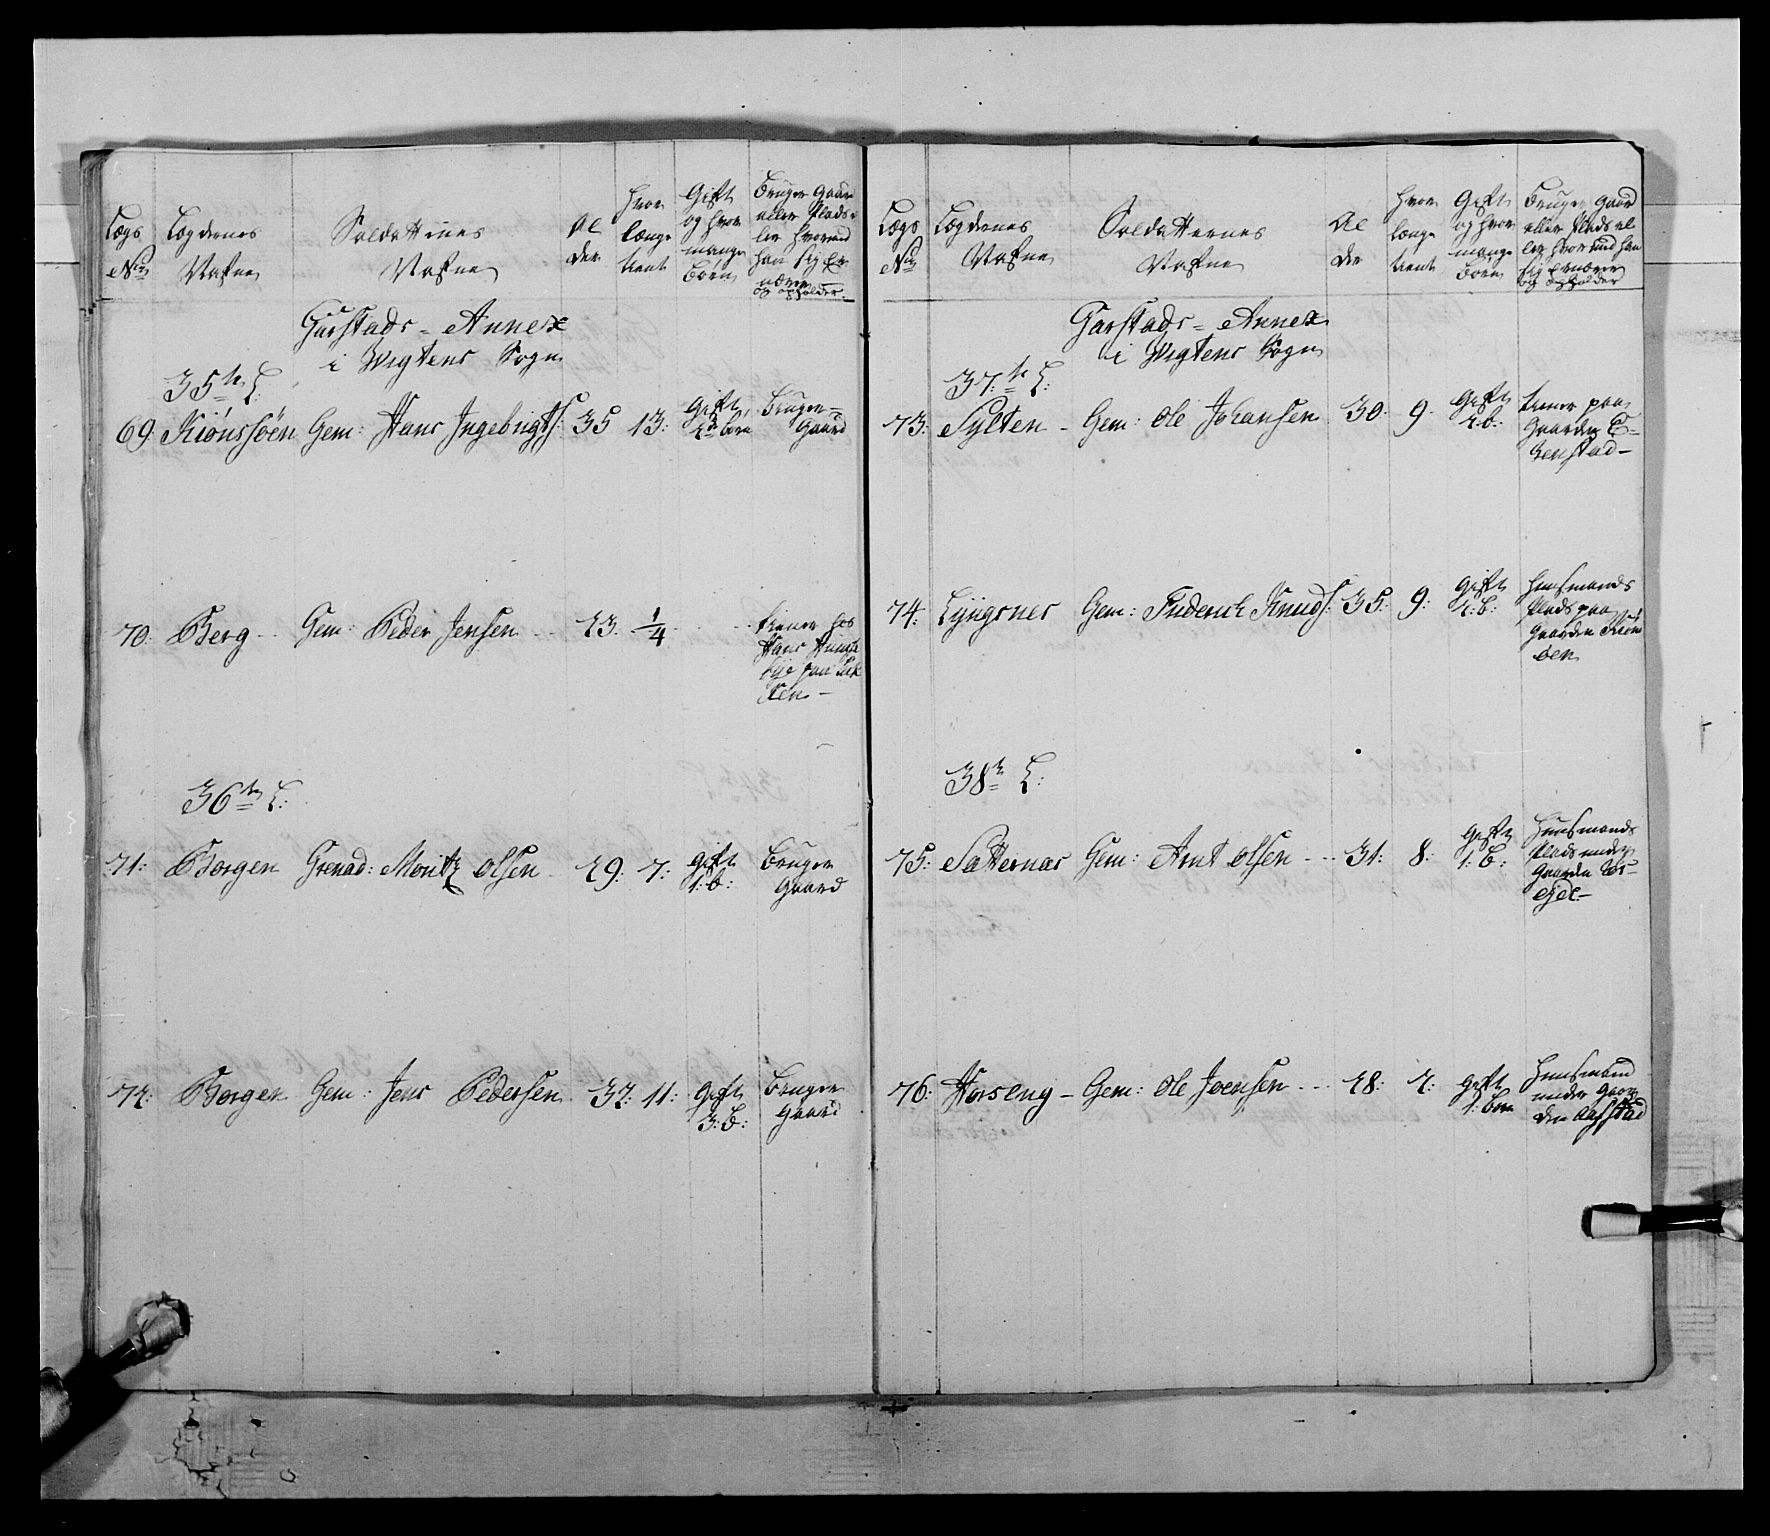 Lægs Nr.
Lægdernes Nafne
Soldatternes Nafne
Al der
hvor længe tient
Gift og hvor mange Børn
Bruger Gaard eller Plads eller hvorved han sig Ernærer og opholder
Garstads = Annex
i Vigtens Sogn
35te L:
69: Kiönssöen Gem: Hans Ingebrigts: 35 13: Gift 2de börn Bruger Gaard
70: Berg - Gem: Peder Jensen - 23: 1/4 - tiener hos Hans
36te L:
71: Borgen Grenad: Moritz Olsen 29: 7: gift 1: b: Bruger Gaard
72: Borgen Gem: Jens Pedersen 32: 11: gift 3: b: Bruger Gaard
Lægs Nr.
Lægdernes Nafne
Soldatternes Nafne
Al der
hvor længe tient
Gift og hvor mange Börn
Bruger Gaard eller Plads eller hvorved han sig Ernærer og opholder
Garstads = Annex
i Vigtens Sogn
37te L:
73: Sylten - Gem: Ole Johansen 30: 9: gift 2 b: tiener paa Gaarden
74: Lyngsnes Gem: Friderich Knuds: 35: 9: gift 2: b: Huusmands Plads paa Gaarden
38te L:
75: Satternæs Gem: Arnt Olsen - 31: 8: gift 1: b: Huusmands Plads under Gaarden
76: Horseng - Gem: Ole Joensen - 28: 2: gift 1: barn Huusmand under Gaarden